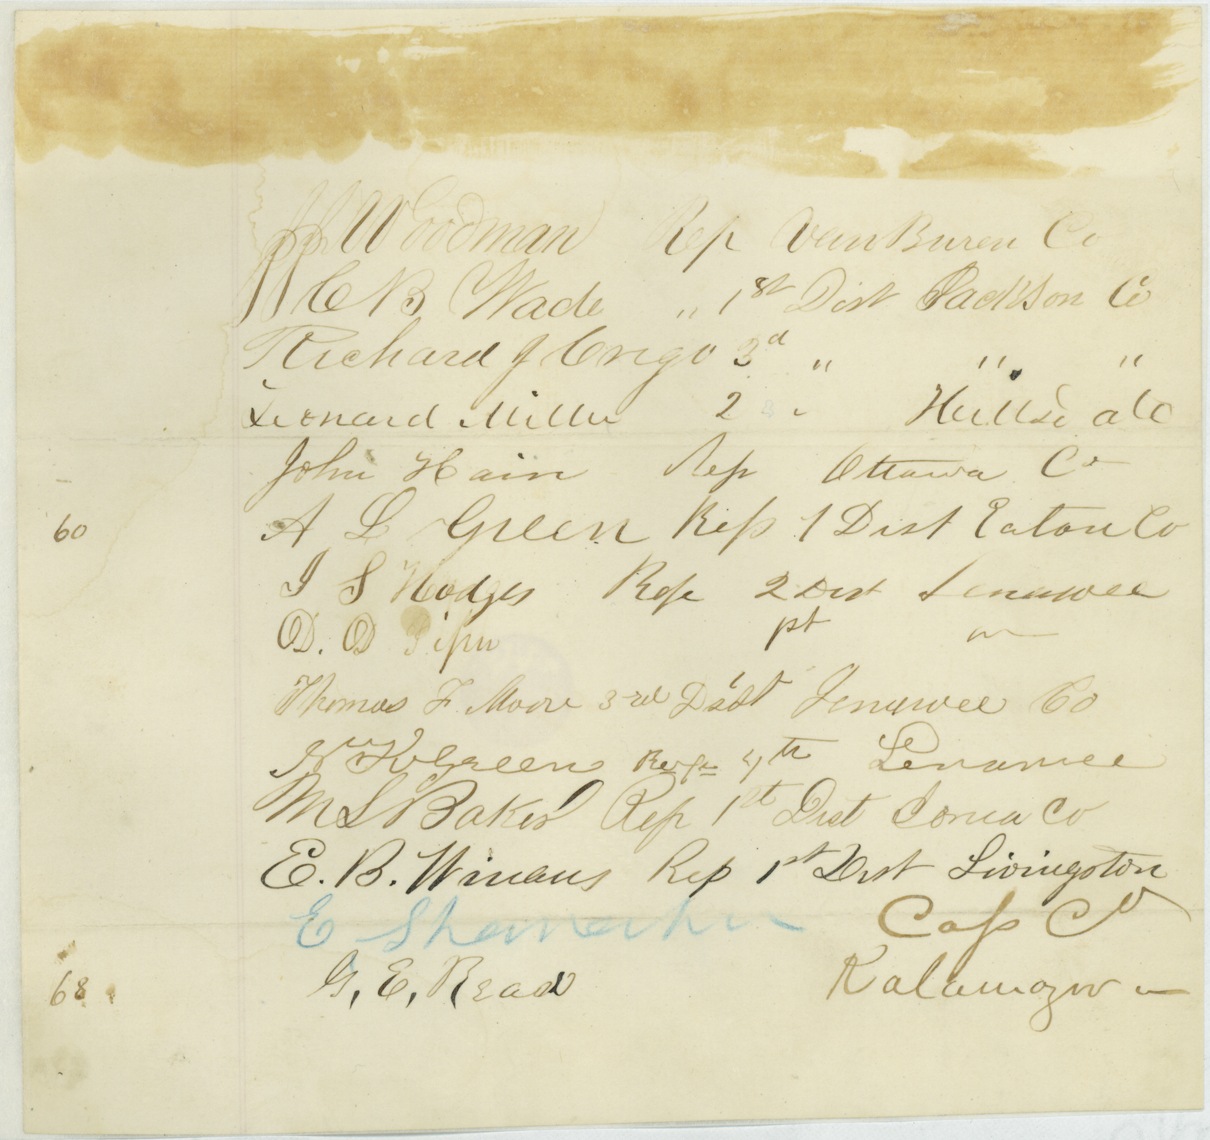 J J Woodman Rep Van Buren Co
C B Wade " 1st Dist Jackson Co
Richard J Crego 3d " " "
Leonard Miller 2 " Hillsdale
John Hain Rep Ottawa Co
60 A L Green Rep 1 Dist Eaton Co
I S Hodges Rep 2 Dist Lenawee
D. D
Thomas F. Moore 3rd Dist Lenawee Co
Green Rep 4th Lenawee
M L Baker Rep 1st Dist Ionia Co
E. B. Winans Rep 1st Dist Livingston
E Shoemaker Cass Co
68 G, E, Read Kalamazoo